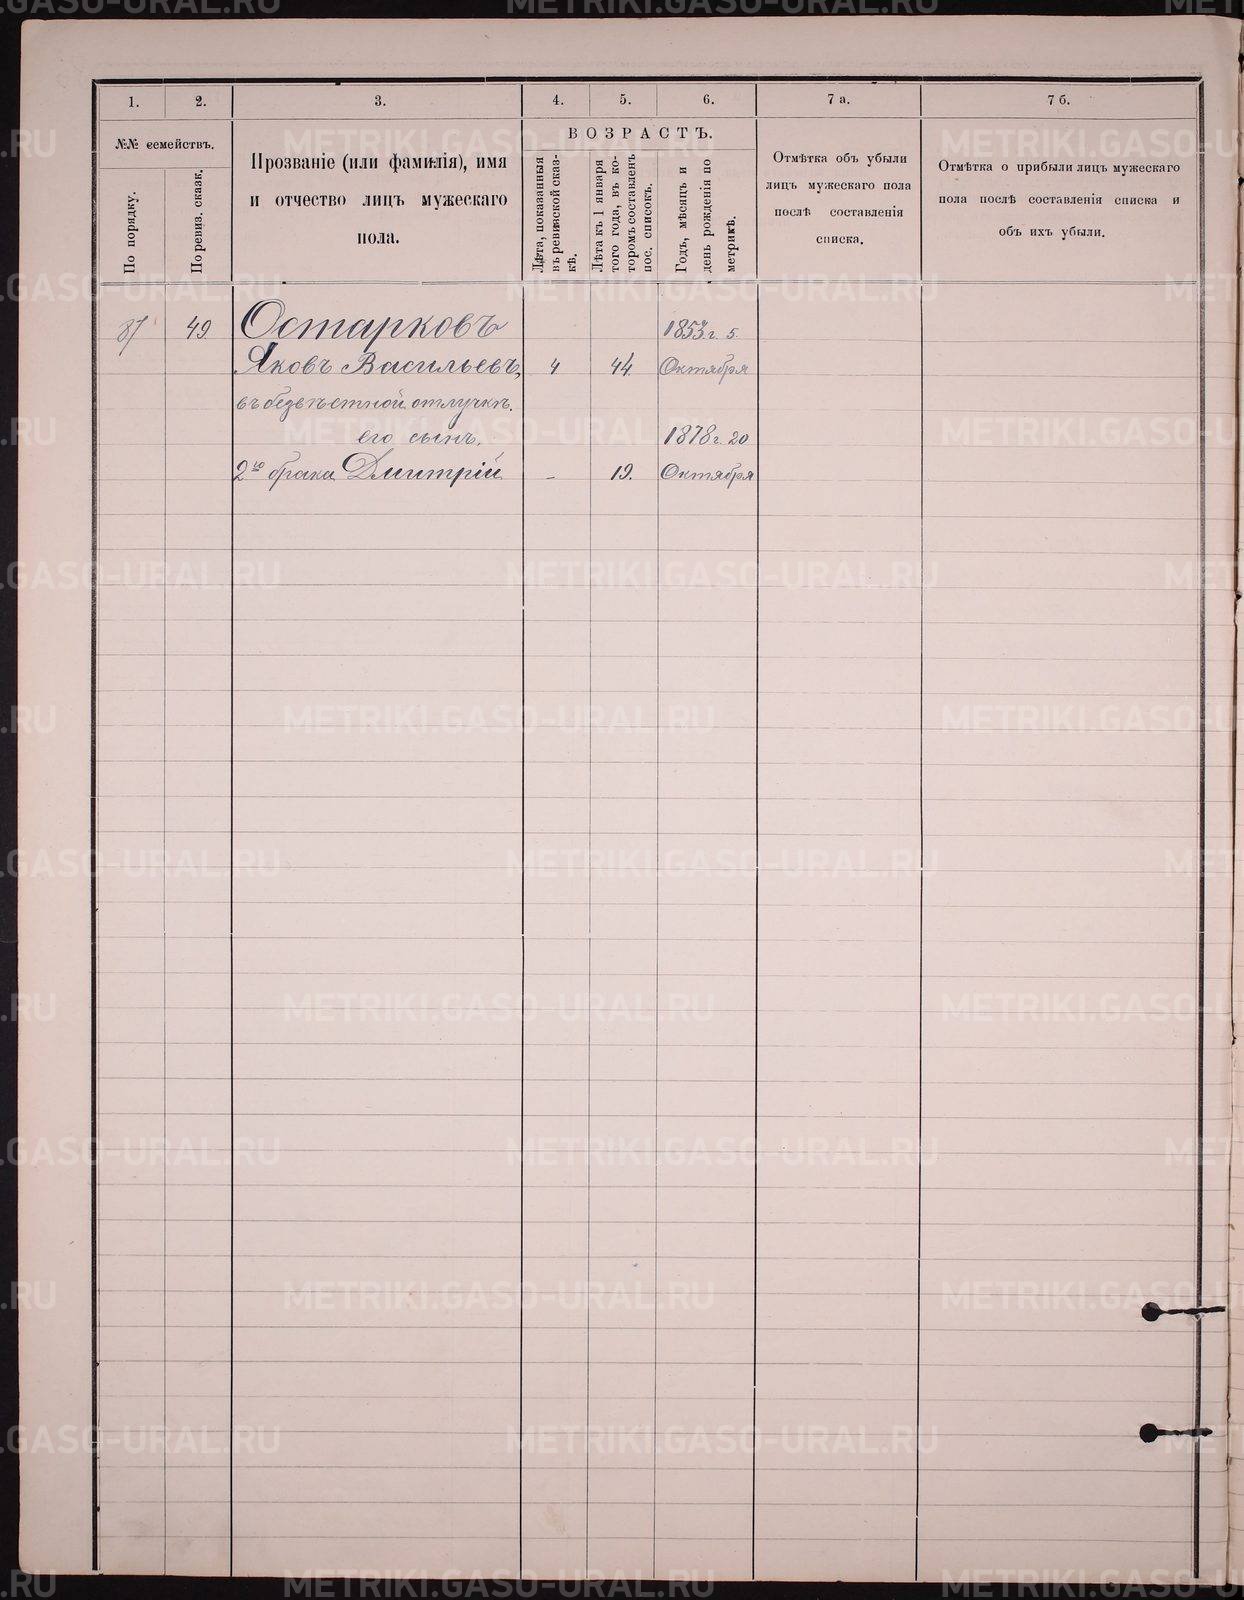 1. 2. 3. 4. 5. 6. 7 а. 7 б.
№№ семействъ.
По порядку.
По ревиз. сказк.
Прозваніе (или фамилія), имя
и отчество лицъ мужескаго
пола.
ВОЗРАСТЪ.
Лѣта, показанныя
въ ревизской сказ-
кѣ.
Лѣта къ 1 января
того года, въ ко-
торомъ составленъ
пос. списокъ.
Годъ, мѣсяцъ и
день рожденія по
метрикѣ.
Отмѣтка объ убыли
лицъ мужескаго пола
послѣ составленія
списка.
Отмѣтка о прибыли лицъ мужескаго
пола послѣ составленія списка и
объ ихъ убыли.
87 49 Остарковъ 1853 г. 5.
Яковъ Васильевъ, 4 44. Октября
въ безвѣстной отлучкѣ.
его сынъ. 1878 г. 20
2го брака Дмитрій - 19. Октября
METRIKI.GASO-URAL.RU